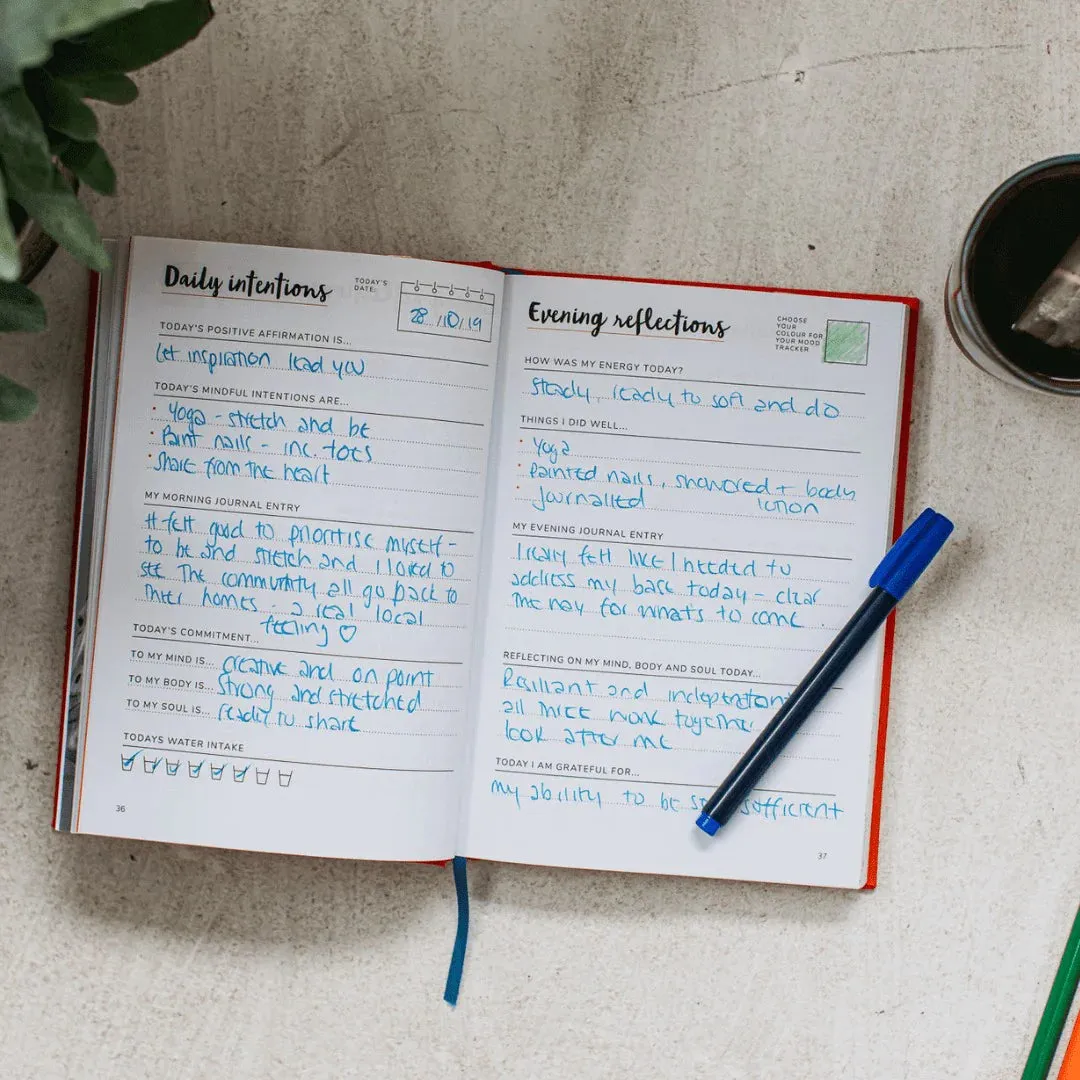 Daily intentions
TODAY'S
DATE:
28/10/19
TODAY'S POSITIVE AFFIRMATION IS...
Let inspiration lead you
TODAY'S MINDFUL INTENTIONS ARE...
• Yoga - stretch and be
• Paint nails - inc. toes
• Share from the heart
MY MORNING JOURNAL ENTRY
It felt good to prioritise myself -
to be and stretch and I loved to
see the community all go back to
their homes - a real local
feeling ♡
TODAY'S COMMITMENT...
TO MY MIND IS... creative and on point
TO MY BODY IS... strong and stretched
TO MY SOUL IS... ready to share
TODAYS WATER INTAKE
36
Evening reflections
CHOOSE
YOUR
COLOUR FOR
YOUR MOOD
TRACKER
HOW WAS MY ENERGY TODAY?
steady, ready to soft and do
THINGS I DID WELL...
• Yoga
• painted nails, showered + body
lotion
• journalled
MY EVENING JOURNAL ENTRY
I really felt like I needed to
address my base today - clear
the way for what's to come.
REFLECTING ON MY MIND, BODY AND SOUL TODAY...
Resiliant and
all three work together
look after me
TODAY I AM GRATEFUL FOR...
my ability to be sufficient
37